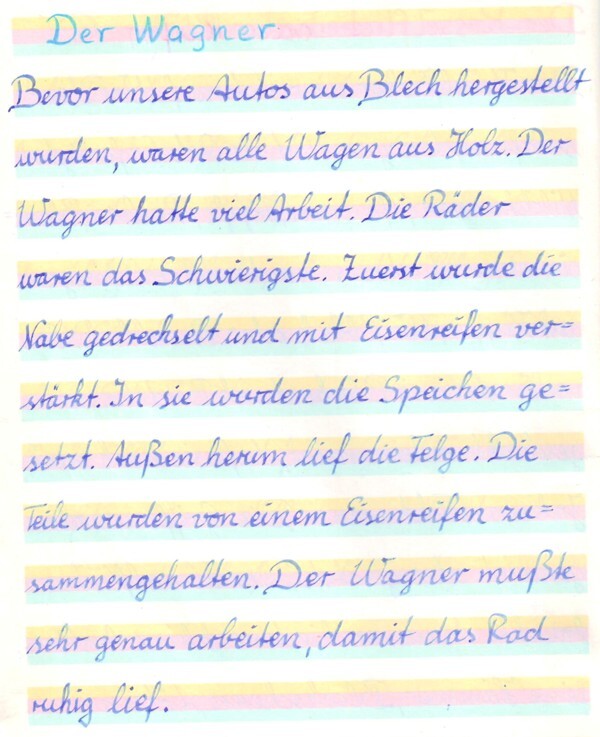 Der Wagner
Bevor unsere Autos aus Blech hergestellt
wurden, waren alle Wagen aus Holz. Der
Wagner hatte viel Arbeit. Die Räder
waren das Schwierigste. Zuerst wurde die
Nabe gedrechselt und mit Eisenreifen ver=
stärkt. In sie wurden die Speichen ge=
setzt. Außen herum lief die Felge. Die
Teile wurden von einem Eisenreifen zu=
sammengehalten. Der Wagner mußte
sehr genau arbeiten, damit das Rad
ruhig lief.